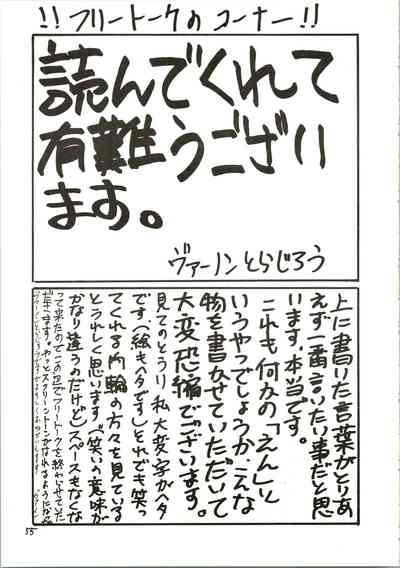 !!フリートークのコーナー!!
読んでくれて
有難うござい
ます。
ヴァーノンとらじろう
上に書いた言葉がとりあ
えず一番言いたい事だと思
います。本当です。
これも何かの「えん」と
いうやつでしょうか、こんな
物を書かせていただいて
大変恐縮でございます。
見てのとうり私、大変字がヘタ
です、(絵もヘタです)それでも笑っ
てくれる内輪の方々を見ている
とうれしく思います(笑いの意味が
かなり違うのだけど)スペースもなくな
って来たのでこの辺でフリートークを終わらせていた
だきます。やっとスクリーントーンがはれるようになった
55